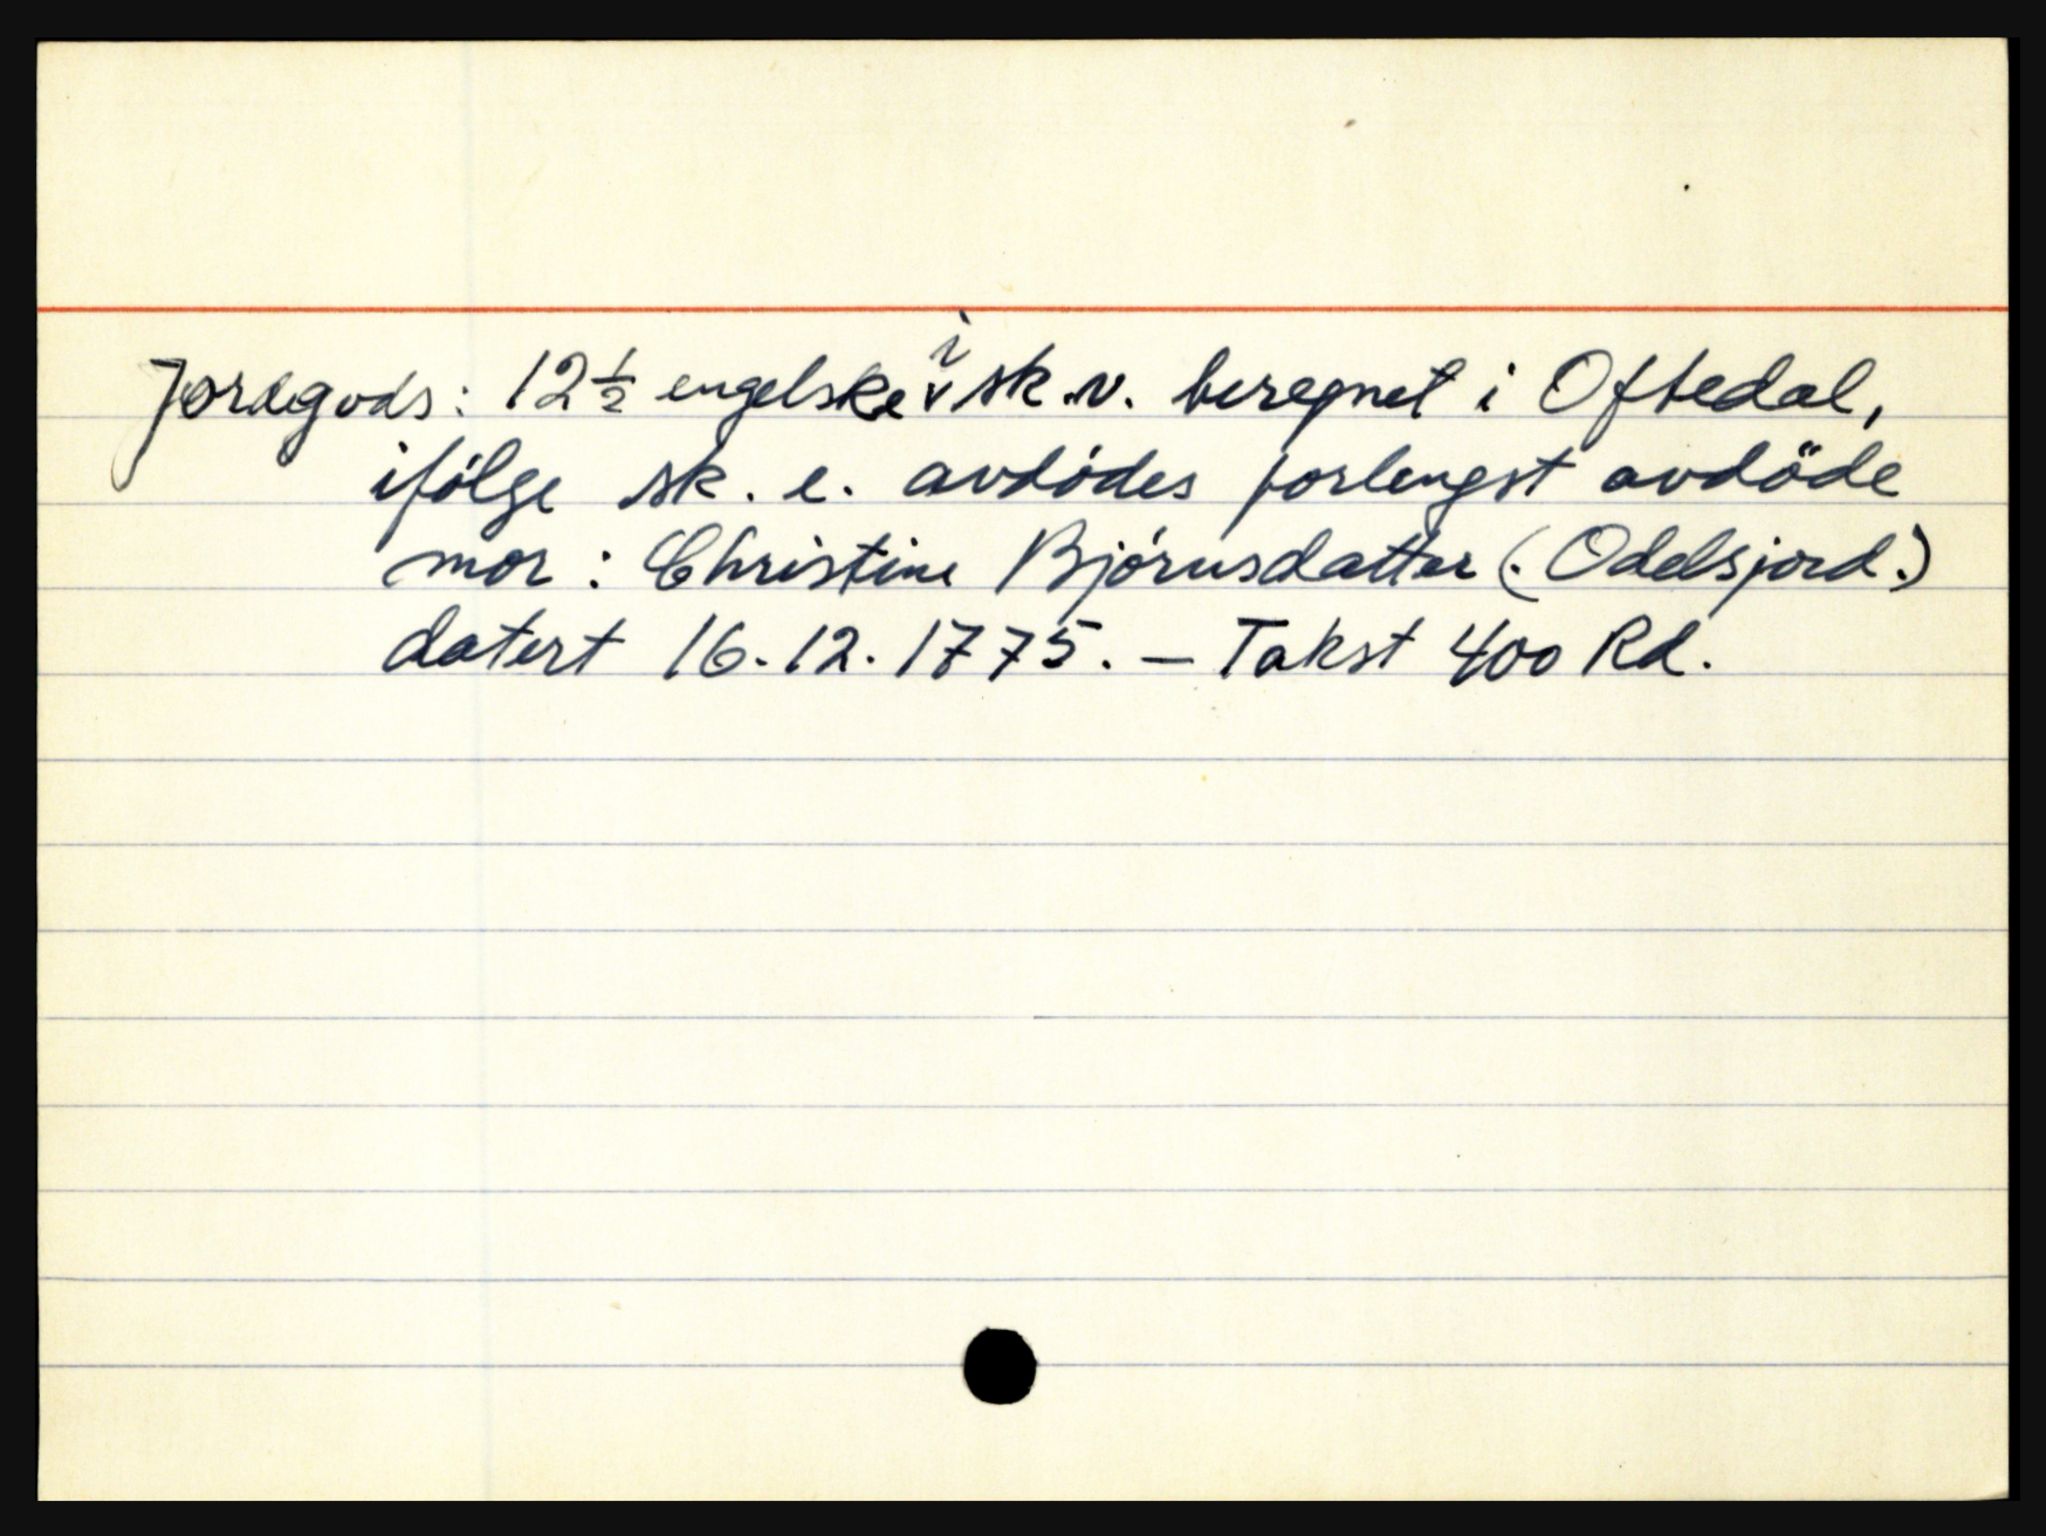 Jordgods: 12½ engelske i sk.v. beregnet i Oftedal,
ifölge sk. e. avdödes forlengst avdöde
mor : Christine Björnsdatter (. Odelsjord.)
datert 16.12.1775. — Takst 400 Rd.